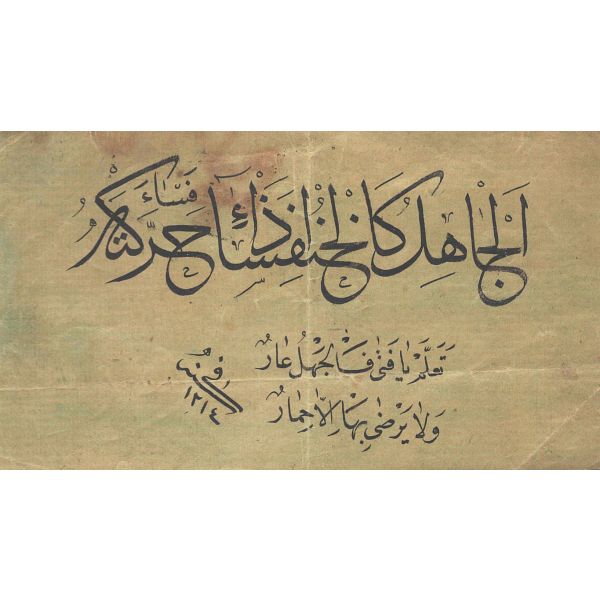 اَلْجَاهِلُ كَالْخُنْفِسَاءِ إِذَا حَرَّكْتَهُ فَسَاءَ
تَعَلَّمْ يَا فَتَى فَالْجَهْلُ عَارٌ
وَلَا يَرْضَى بِهَا إِلَّا حِمَارُ
في سنة
١٢١٤